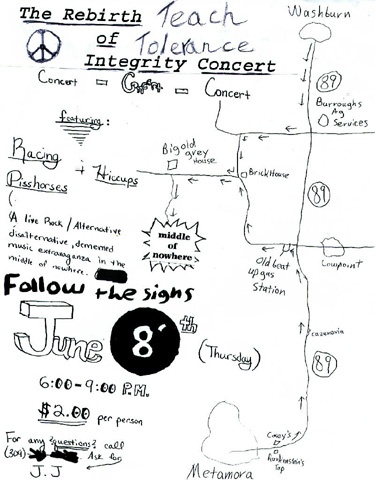 The Rebirth Teach
of Tolerance
Integrity Concert
Concert - - Concert
featuring:
Racing
Pisshorses + Hiccups
(A live Rock / Alternative
disalternative, demented
music extravaganza in the
middle of nowhere.
Follow the signs
June 8th (Thursday)
6:00-9:00 P.M.
$2.00 per person
For any questions, call
(309) Ask for
J.J
Washburn
89
Burroughs
Ag
Services
Big old
grey
House
Brick House
middle
of
nowhere
89
Old beat
up gas
Station
Lowpoint
cazenovia
89
Casey's
Tap
Metamora